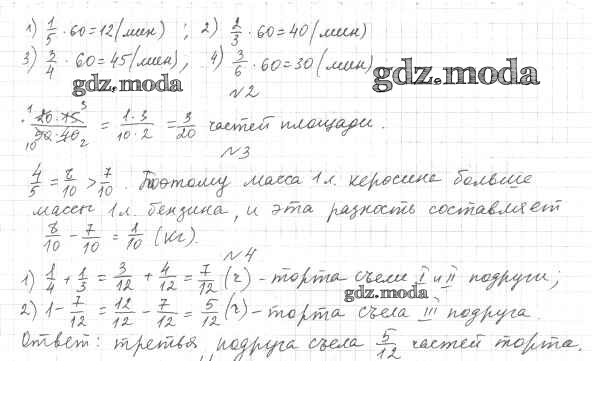 1) 1/5 · 60 = 12 (мин) ; 2) 2/3 · 60 = 40 (мин)
3) 3/4 · 60 = 45 (мин), 4) 3/6 · 60 = 30 (мин)
gdz.moda
gdz.moda
№2
20·15/90·40 = 1·3/10·2 = 3/20 частей площади.
№3
4/5 = 8/10 > 7/10. Поэтому масса 1л. керосина больше
массы 1л. бензина, и эта разность составляет
8/10 − 7/10 = 1/10 (кг).
№4
1) 1/4 + 1/3 = 3/12 + 4/12 = 7/12 (ч) - торта съели I и II подруги;
gdz.moda
2) 1 − 7/12 = 12/12 − 7/12 = 5/12 (ч) - торта съела III подруга.
Ответ: третья подруга съела 5/12 частей торта.